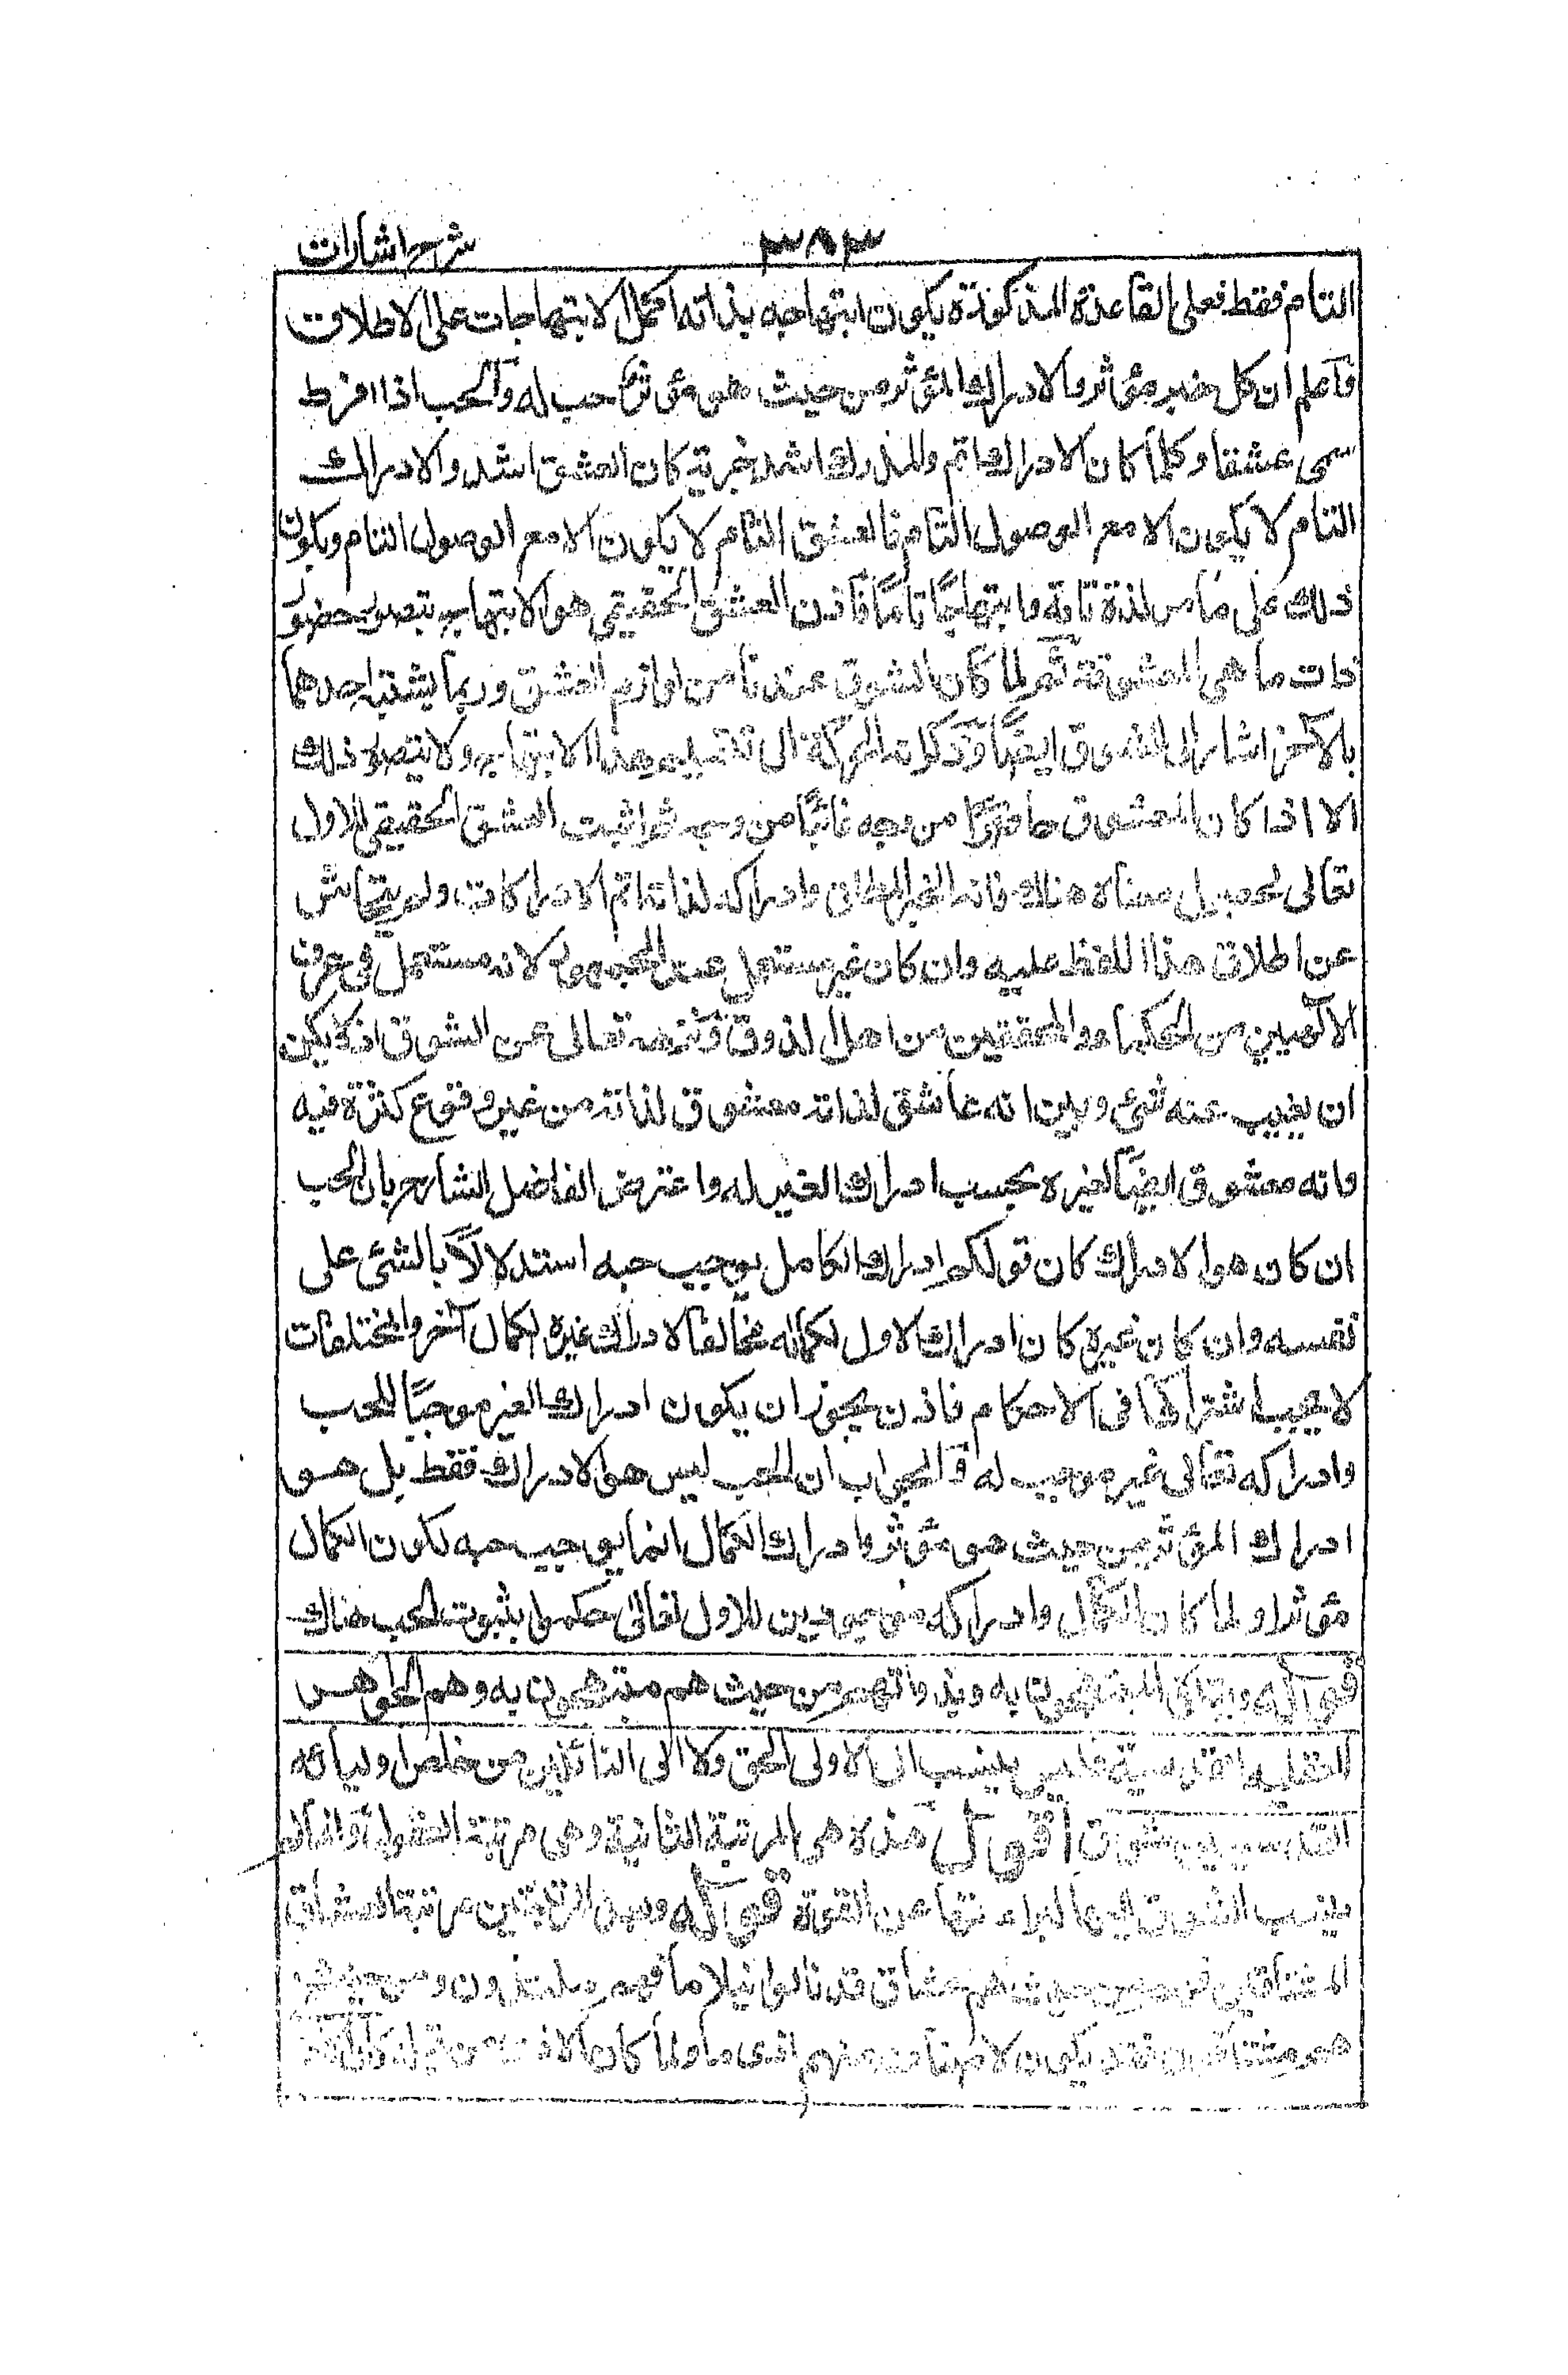 ٣٨٣
شرح اشارات
التام فقط فعلى القاعدة المذكورة يكون ابتهاجه بذاته اكمل الابتهاجات على الاطلاق
واعلم ان كل خير مؤثر والادراك المؤثر من حيث هو مؤثر حب له والحب اذا افرط
سمى عشقا وكلما كان الادراك اتم والمدرك اشد خيرية كان العشق اشد والادراك
التام لا يكون الا مع الوصول التام فالعشق التام لا يكون الا مع الوصول التام ويكون
ذلك على ما مر لذة تامة وابتهاجًا تامًا فاذن العشق الحقيقي هو الابتهاج بتصور حضور
ذات ما هي المعشوقة ثم لما كان الشوق عندنا من لوازم العشق وربما يشتبه احدهما
بالآخر اشار الى الشوق ايضًا وذكر انه الحركة الى تتميم هذا الابتهاج ولا يتصور ذلك
الا اذا كان المعشوق حاضرًا من وجه غائبًا من وجه ثم اثبت العشق الحقيقي للاول
تعالى لحصول معناه هناك فانه الخير المطلق وادراكه لذاته اتم الادراكات ولم يتحاش
عن اطلاق هذا اللفظ عليه وان كان غير مستعمل عند الجمهور لانه مستعمل في عرف
الآلهيين من الحكماء والمحققين من اهل الذوق ونزهه تعالى عن الشوق اذ لا يمكن
ان يغيب عنه شئ وبين انه عاشق لذاته معشوق لذاته من غير وقوع كثرة فيه
وانه معشوق ايضًا لغيره بحسب ادراك الغير له واعترض الفاضل الشارح بان الحب
ان كان هو الادراك كان قولكم ادراك الكامل يوجب حبه استدلالًا بالشئ على
نفسه وان كان غيره كان ادراك الاول لكماله مخالفا لادراك غيره لكمال آخر والمختلفات
لا يجب اشتراكها في الاحكام فاذن يجوز ان يكون ادراك الغير موجبًا للحب
وادراكه تعالى غير موجب له والجواب ان الحب ليس هو الادراك فقط بل هو
ادراك المؤثر من حيث هو مؤثر وادراك الكمال انما يوجب حبه لكون الكمال
مؤثرا ولما كان الكمال وادراكه موجودين للاول تعالى حكموا بثبوت الحب هناك
قوله ويتلوه المبتهجون به وبذواتهم من حيث هم مبتهجون به وهم الجواهر
العقلية القدسية فليس ينسب الى الاول الحق ولا الى التالين من خلص اوليائه
القدسيين شوق اقول هذه هى المرتبة الثانية وهى مرتبة العقول وانما لم
ينسب الشوق اليها لبراءتها عن القوة قوله وبعد المرتبتين مرتبة العشاق
المشتاقين فهم من حيث هم عشاق قد نالوا نيلا ما فهم ملتذون ومن حيث
هم مشتاقون فقد يكون لاصناف منهم اذى ما ولما كان الاذى من قبله